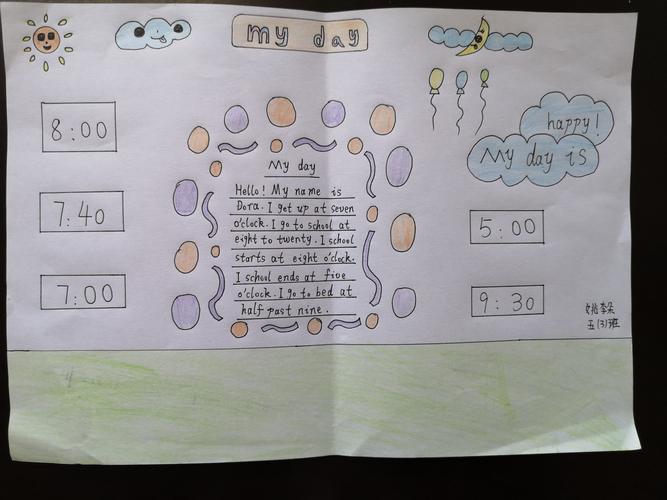 my day
8:00
7:40
7:00
My day
Hello! My name is
Dora. I get up at seven
o'clock. I go to school at
eight to twenty. I school
starts at eight o'clock.
I school ends at five
o'clock. I go to bed at
half past nine.
happy!
My day is
5:00
9:30
李朵
五(3)班